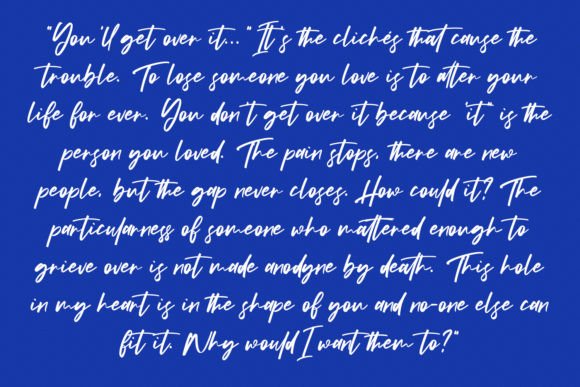 "You'll get over it..." It's the clichés that cause the
trouble. To lose someone you love is to alter your
life for ever. You don't get over it because 'it" is the
person you loved. The pain stops, there are new
people, but the gap never closes. How could it? The
particularness of someone who mattered enough to
grieve over is not made anodyne by death. This hole
in my heart is in the shape of you and no-one else can
fit it. Why would I want them to?"